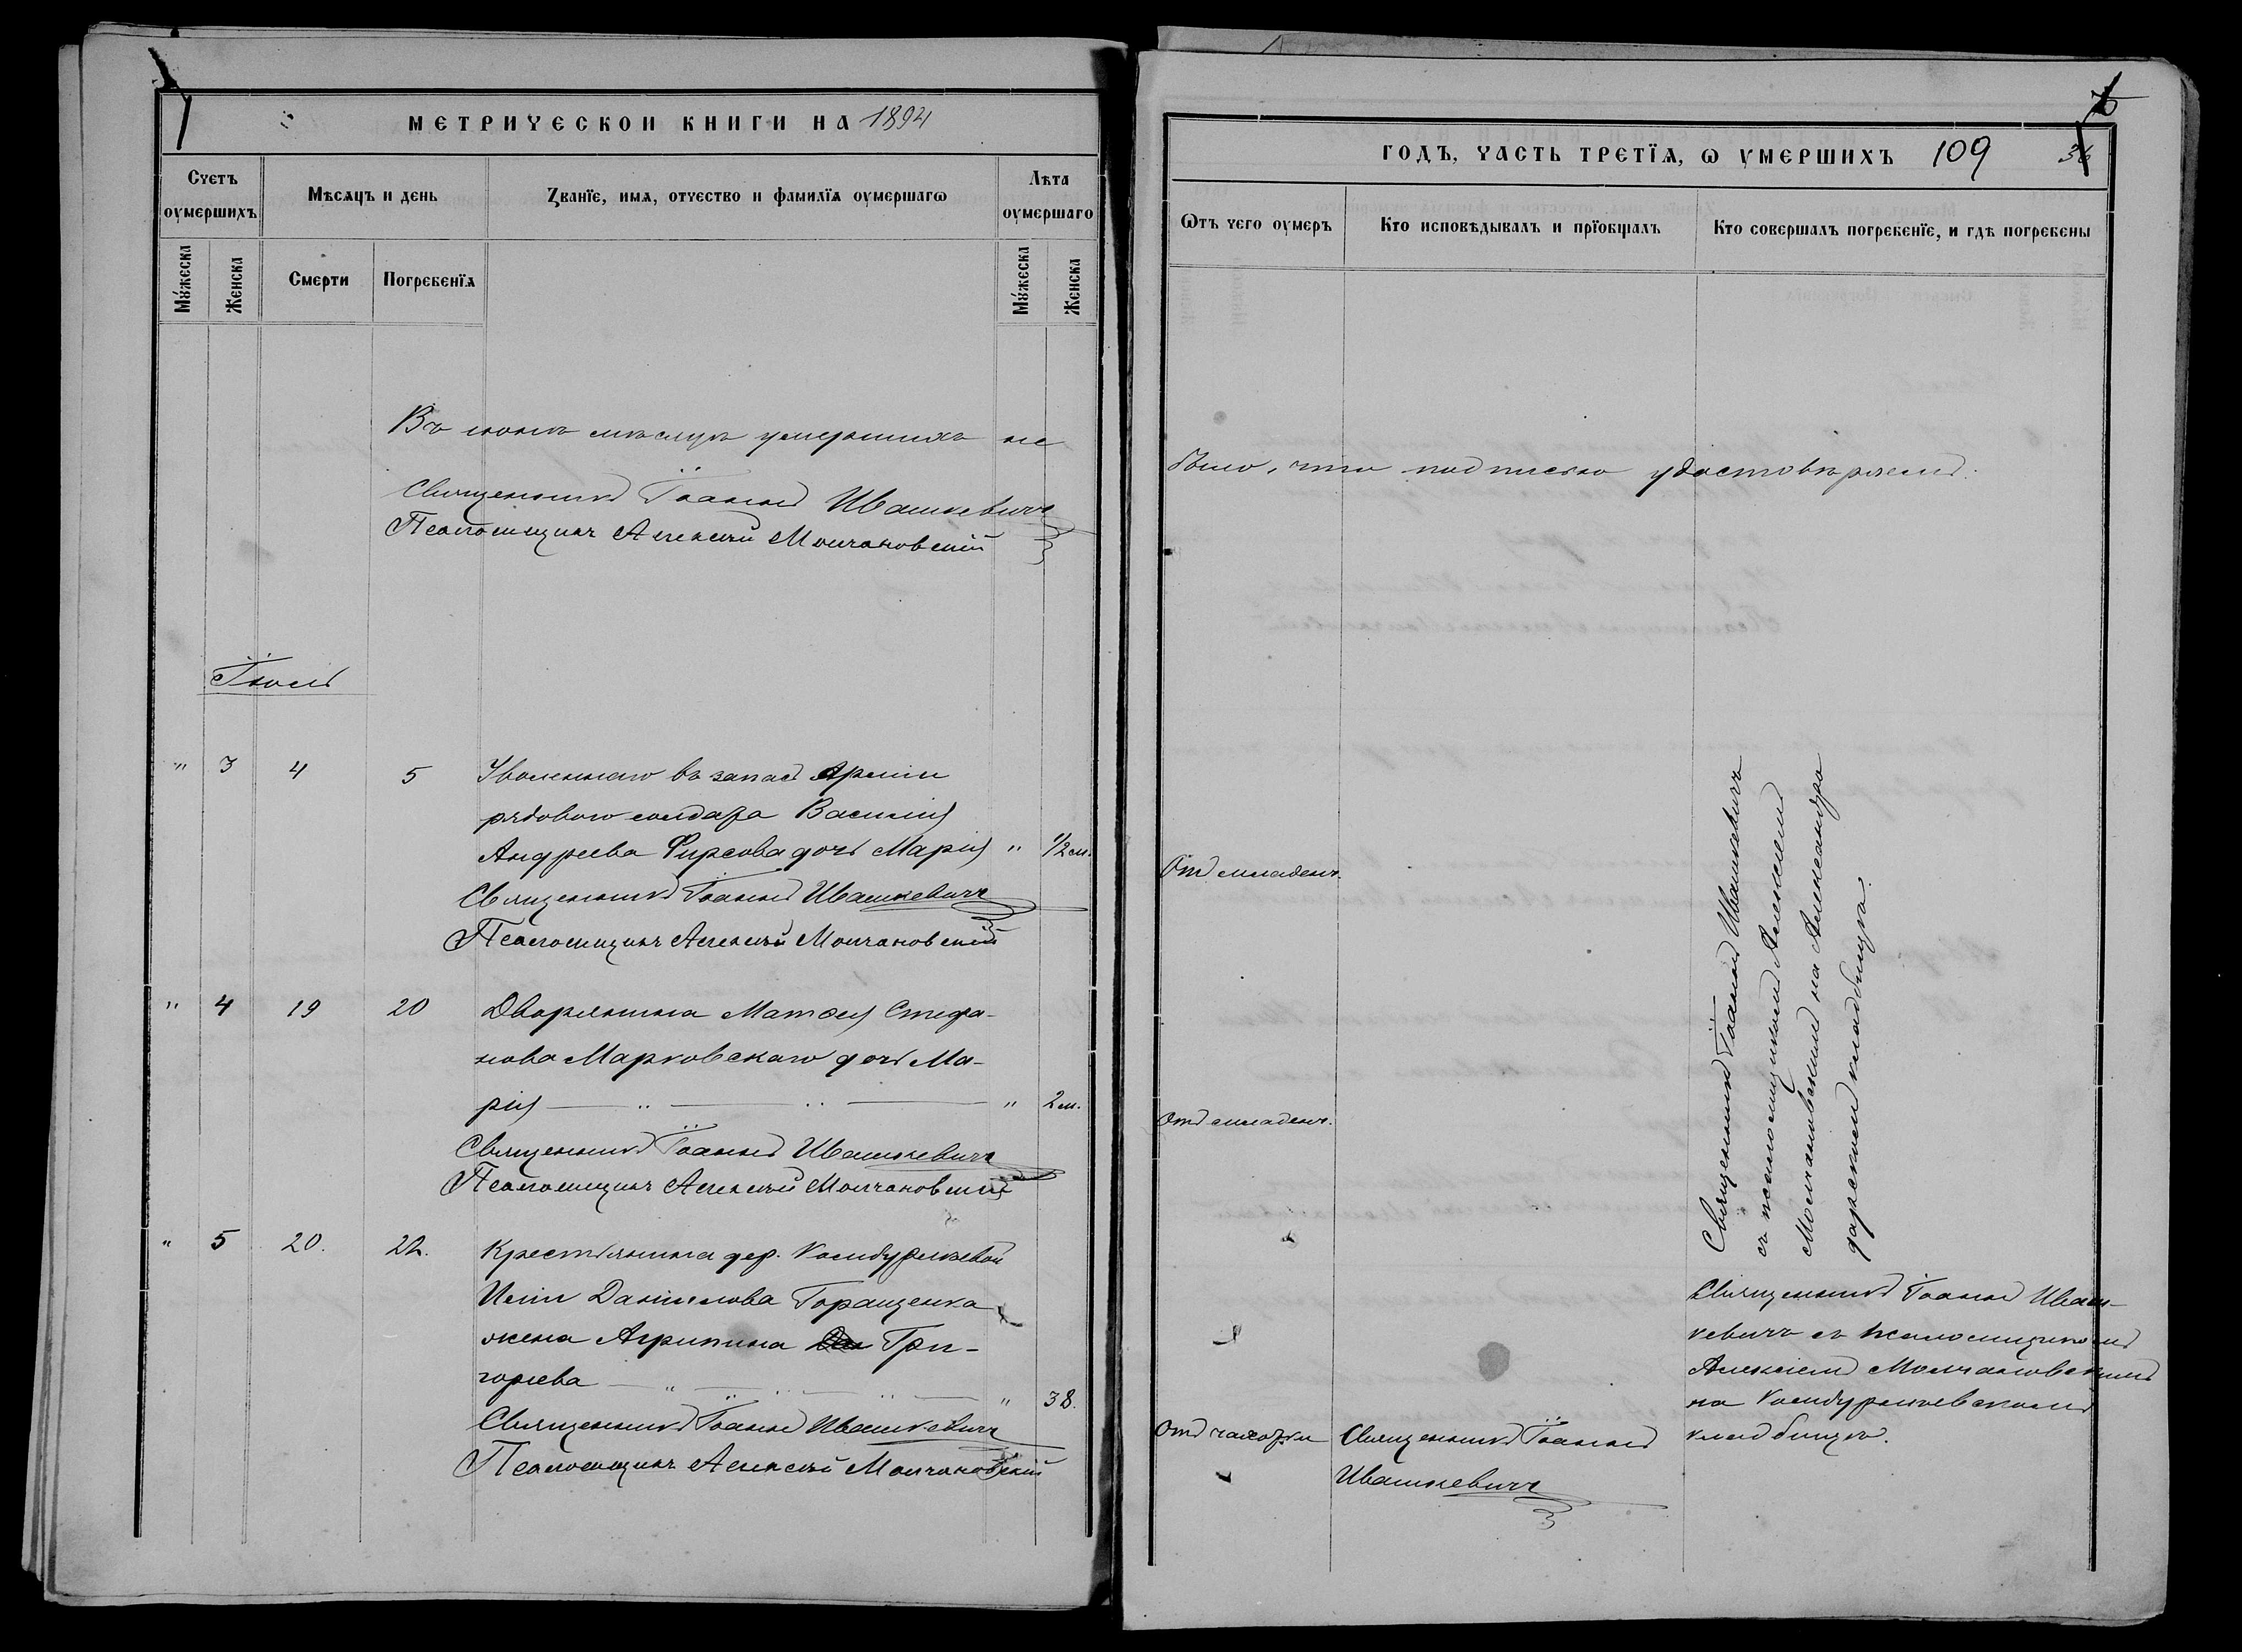 МЕТРИЧЕСКОИ КНИГИ НА 1894
Счетъ оумершихъ
Мѣсяцъ и день
Званїе, имя, отчество и фамилїя оумершагѡ
Лѣта оумершаго
Мꙋжеска
Женска
Смерти
Погребенїя
Мꙋжеска
Женска
Въ іюнѣ мѣсяцѣ умершихъ не
Священникъ Іоаннъ Ивашкевичъ
Псаломщикъ Алексѣй Молчановскій
Іюль
" 3 4 5 Уволеннаго въ запасъ Арміи
рядового солдата Василія
Андреева Фирсова дочь Марія " 1/2 м.
Священникъ Іоаннъ Ивашкевичъ
Псаломщикъ Алексѣй Молчановскій
" 4 19 20 Дворянина Матѳея Стефа-
нова Марковскаго дочь Ма-
рія " 2 м.
Священникъ Іоаннъ Ивашкевичъ
Псаломщикъ Алексѣй Молчановскій
" 5 20. 22. Крестьянина дер.
Иліи Даніилова Горащенка
жена Агрипина Гри-
горьева " 38.
Священникъ Іоаннъ Ивашкевичъ
Псаломщикъ Алексѣй Молчановскій
ГОДЪ, ЧАСТЬ ТРЕТЇЯ, Ѡ УМЕРШИХЪ 109 36
Ѿтъ чего оумеръ
Кто исповѣдывалъ и прїобщалъ
Кто совершалъ погребенїе, и гдѣ погребены
было, что подписью удостовѣряемъ.
Отъ младенч.
Отъ младенч.
Священникъ Іоаннъ Ивашкевичъ
съ псаломщикомъ Алексѣемъ
Молчановскимъ на Александро
дарскомъ кладбищѣ.
Отъ чахотки
Священникъ Іоаннъ
Ивашкевичъ
Священникъ Іоаннъ Иваш-
кевичъ съ псаломщикомъ
Алексѣемъ Молчановскимъ
на
кладбищѣ.